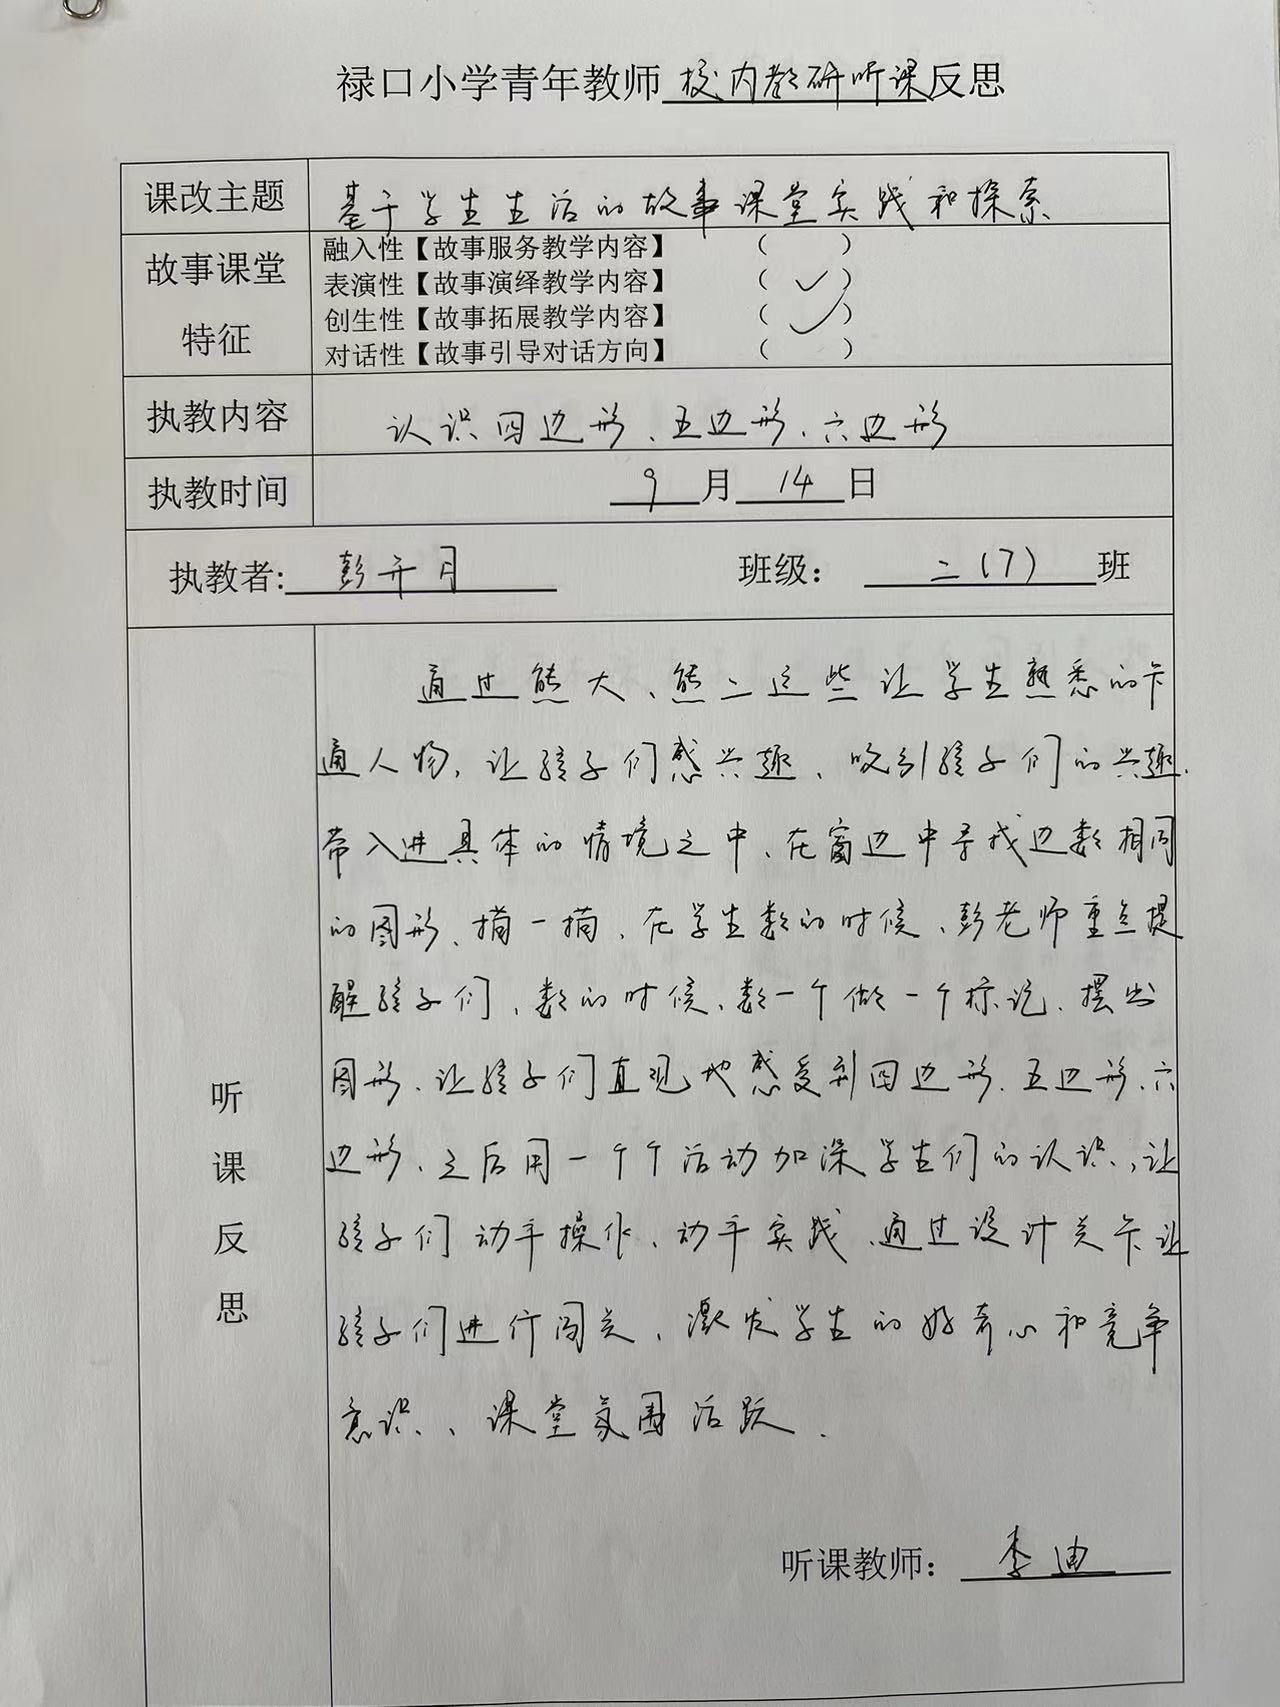 禄口小学青年教师校内教研听课反思
课改主题 基于学生生活的故事课堂实践和探索
故事课堂特征
融入性【故事服务教学内容】 （ ）
表演性【故事演绎教学内容】 （✓）
创生性【故事拓展教学内容】 （✓）
对话性【故事引导对话方向】 （ ）
执教内容 认识四边形、五边形、六边形
执教时间 9月14日
执教者: 彭开月 班级： 二（7）班
听课反思
通过熊大、熊二这些让学生熟悉的卡
通人物，让孩子们感兴趣，吸引孩子们的兴趣，
带入进具体的情境之中，在窗边中寻找边数相同
的图形，描一描，在学生数的时候，彭老师重点提
醒孩子们，数的时候，数一个做一个标记，摆出
图形，让孩子们直观地感受到四边形、五边形、六
边形，之后用一个个活动加深学生们的认识，让
孩子们动手操作，动手实践，通过设计关卡让
孩子们进行闯关，激发学生的好奇心和竞争
意识，课堂氛围活跃．
听课教师： 李迪